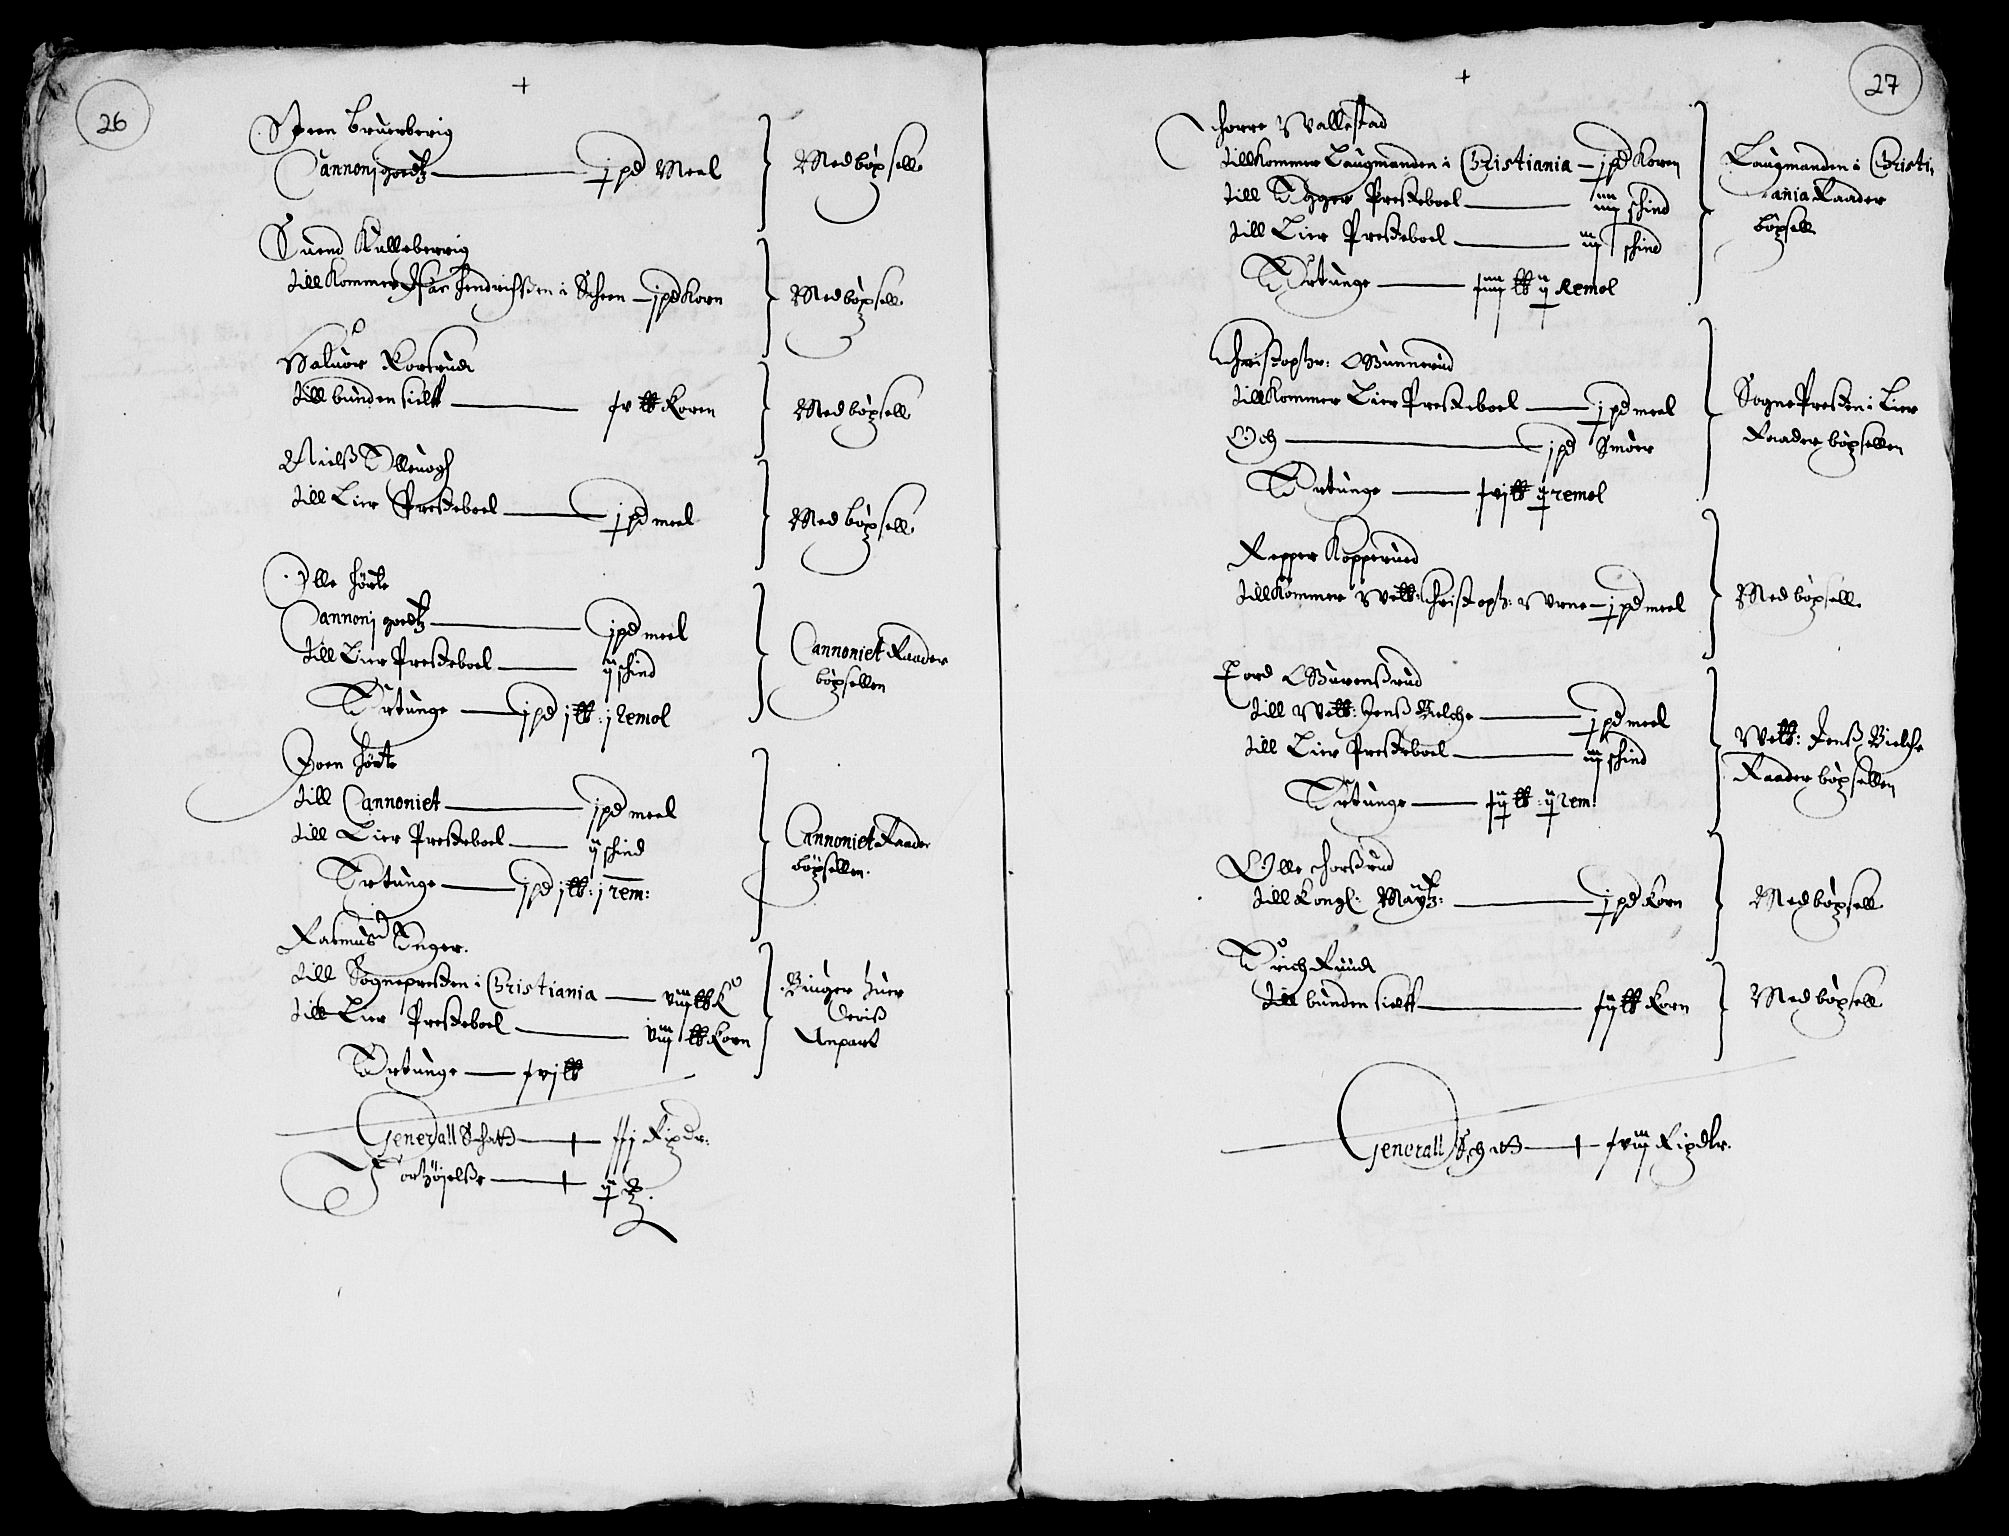 26
Joen bruerberig
Cannonj goedtz — j pd Meel
Med böxsell
Suend Kulleberrig
tillkommer Ifuar Hendrichssen i Scheen — j pd korn
Med böxsell
Haluor Kortrudt
till bunden sielff — xv ℔ korn
Med böxsell
Nielss Olleuogh
till Lier Presteboel — j pd meel
Med böxsell
Olle Hörte
Cannonj goedtz — j pd meel
till Lier Presteboel — ij schind
Ørtunge — j pd j ℔: j remol
Cannoniet Raader
böxsellen
Joen Hörte
till Cannoniet — j pd meel
till Lier Presteboel — ij schind
Ørtunge — j pd j ℔: j rem:
Cannoniet Raader
böxsellen.
Rasmus Enger.
till Sognepresten i Christiania — viij ℔ K
till Lier Presteboel — viij ℔ korn
Ørtunge — xvj ℔
Biuger huer
deriss
Anpart
Generall Schatt — xxj Rixdr:
Forhöjelse — ij
27
Thorre Wallestad
tillkommer Laugmanden i Christiania — j pd koren
till Egger Presteboel — iiij schind
till Lier Presteboel — iij schind
Ørtunge — xiiij ℔ ij Remol
Laugmanden i Christi,
ania Raader
böxsell
Christopher: Gunnerud
tillkommer Lier Presteboel — j pd meel
Och — j pd Smöer
Ørtunge — xvj ℔ ij remol
Sogne Presten i Lier
Raader böxsellen
Repper Kopperud
tillkommer Welb: Christoph: Wrne — j pd meel
Med böxsell
Tord Gurenssrud
till Welb: Jenss Bielche — j pd meel
till Lier Presteboel — iij schind
Ørtunge — xij ℔: ij rem:
Welb: Jenss Bielche
Raader böxsellen
Olle Thorssrud
till Kongl: Maytz: — j pd korn
Med böxsell
Erich Ruud
till bunden sielff — xij ℔ korn
Med böxsell
Generall Schatt — xviij Rixdlr.